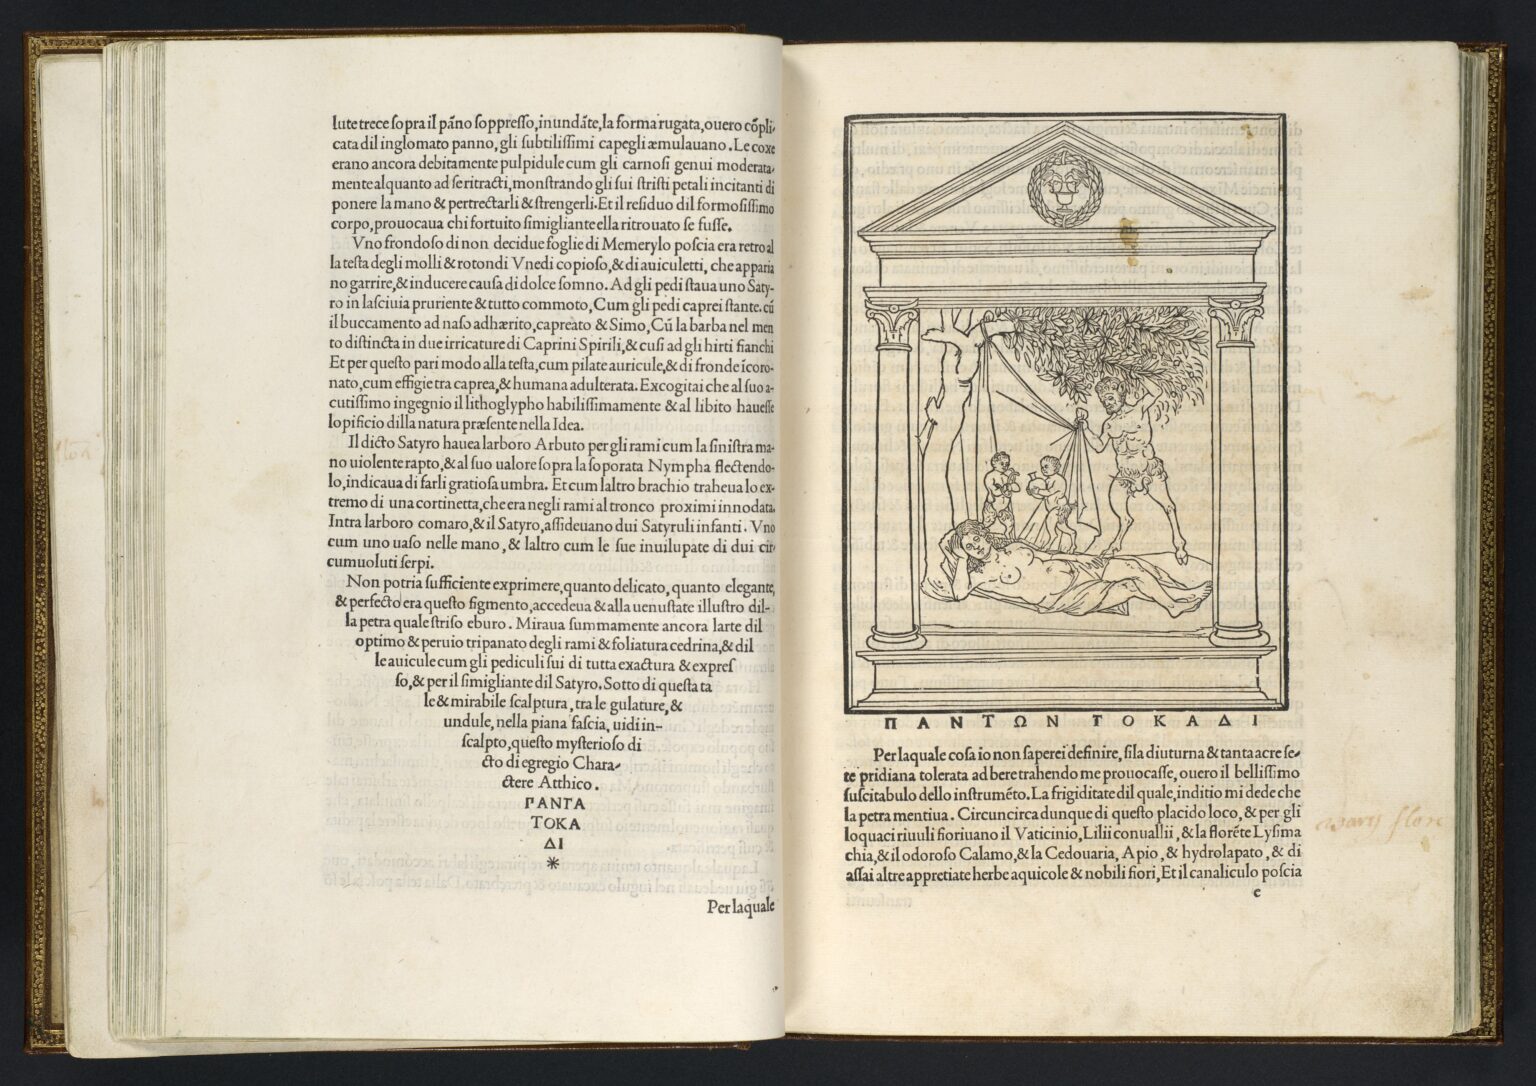 lute trece sopra il pãno soppresso, inundãte, la forma rugata, ouero cõpli-
cata dil inglomato panno, gli subtilissimi capegli æmulauano. Le coxe
erano ancora debitamente pulpidule cum gli carnosi genui moderata-
mente alquanto ad se ritracti, monstrando gli sui stristi petali incitanti di
ponere la mano & pertrectarli & strengerli. Et il residuo dil formosissimo
corpo, prouocaua chi fortuito simigliante ella ritrouato se fusse.
Vno frondoso di non decidue foglie di Memerylo poscia era retro al
la testa degli molli & rotondi Vnedi copioso, & di auiculetti, che apparia
no garrire, & inducere causa di dolce somno. Ad gli pedi staua uno Saty-
ro in lasciuia pruriente & tutto commoto, Cum gli pedi caprei stante. cũ
il buccamento ad naso adhærito, capreato & Simo, Cũ la barba nel men
to distincta in due irricature di Caprini Spirili, & cusi ad gli hirti fianchi
Et per questo pari modo alla testa, cum pilate auricule, & di fronde ĩcoro-
nato, cum effigie tra caprea, & humana adulterata. Excogitai che al suo a-
cutissimo ingegnio il lithoglypho habilissimamente & al libito hauesse
lopificio dilla natura præsente nella Idea.
Il dicto Satyro hauea larboro Arbuto per gli rami cum la sinistra ma-
no uiolente rapto, & al suo ualore sopra la soporata Nympha flectendo-
lo, indicaua di farli gratiosa umbra. Et cum laltro brachio traheua lo ex-
tremo di una cortinetta, che era negli rami al tronco proximi innodata.
Intra larboro comaro, & il Satyro, assideuano dui Satyruli infanti. Vno
cum uno uaso nelle mano, & laltro cum le sue inuilupate di dui cir-
cumuoluti serpi.
Non potria sufficiente exprimere, quanto delicato, quanto elegante,
& perfecto era questo figmento, accedeua & alla uenustate illustro dil-
la petra quale striso eburo. Miraua summamente ancora larte dil
optimo & peruio tripanato degli rami & foliatura cedrina, & dil
le auicule cum gli pediculi sui di tutta exactura & expres
so, & per il simigliante dil Satyro. Sotto di questa ta
le & mirabile scalptura, tra le gulature, &
undule, nella piana fascia, uidi in-
scalpto, questo mysterioso di
cto di egregio Chara-
ctere Atthico.
ΓΑΝΤΑ
ΤΟΚΑ
ΔΙ
*
Per laquale
ΠΑΝΤΩΝ ΤΟΚΑΔΙ
Per laquale cosa io non saperei definire, si la diuturna & tanta acre se-
te pridiana tolerata ad bere trahendo me prouocasse, ouero il bellissimo
suscitabulo dello instrumẽto. La frigiditate dil quale, inditio mi dede che
la petra mentiua. Circuncirca dunque di questo placido loco, & per gli
loquaci riuuli fioriuano il Vaticinio, Lilii conuallii, & la florẽte Lysima
chia, & il odoroso Calamo, & la Cedouaria, Apio, & hydrolapato, & di
assai altre appretiate herbe aquicole & nobili fiori, Et il canaliculo poscia
e